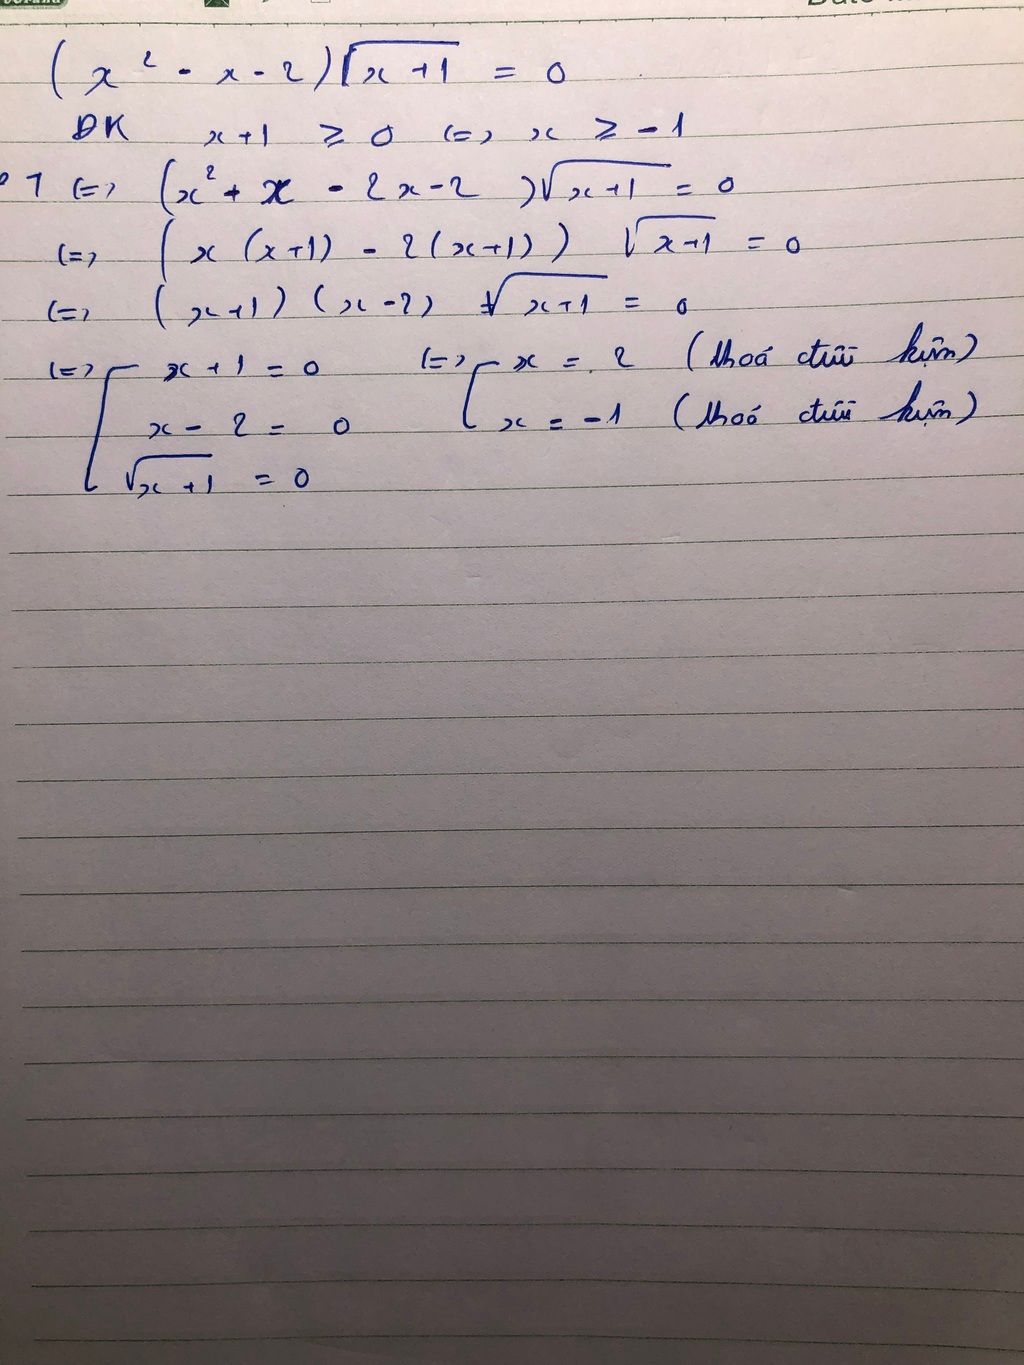 (x² - x - 2)√(x+1) = 0
ĐK x+1 ≥ 0 (=) x ≥ -1
PT (=) (x² + x - 2x - 2)√(x+1) = 0
(=) (x(x+1) - 2(x+1)) √(x+1) = 0
(=) (x+1)(x-2) √(x+1) = 0
(=) [ x + 1 = 0 (=) [ x = 2 (thoả điều kiện)
x - 2 = 0 x = -1 (thoả điều kiện)
√(x+1) = 0